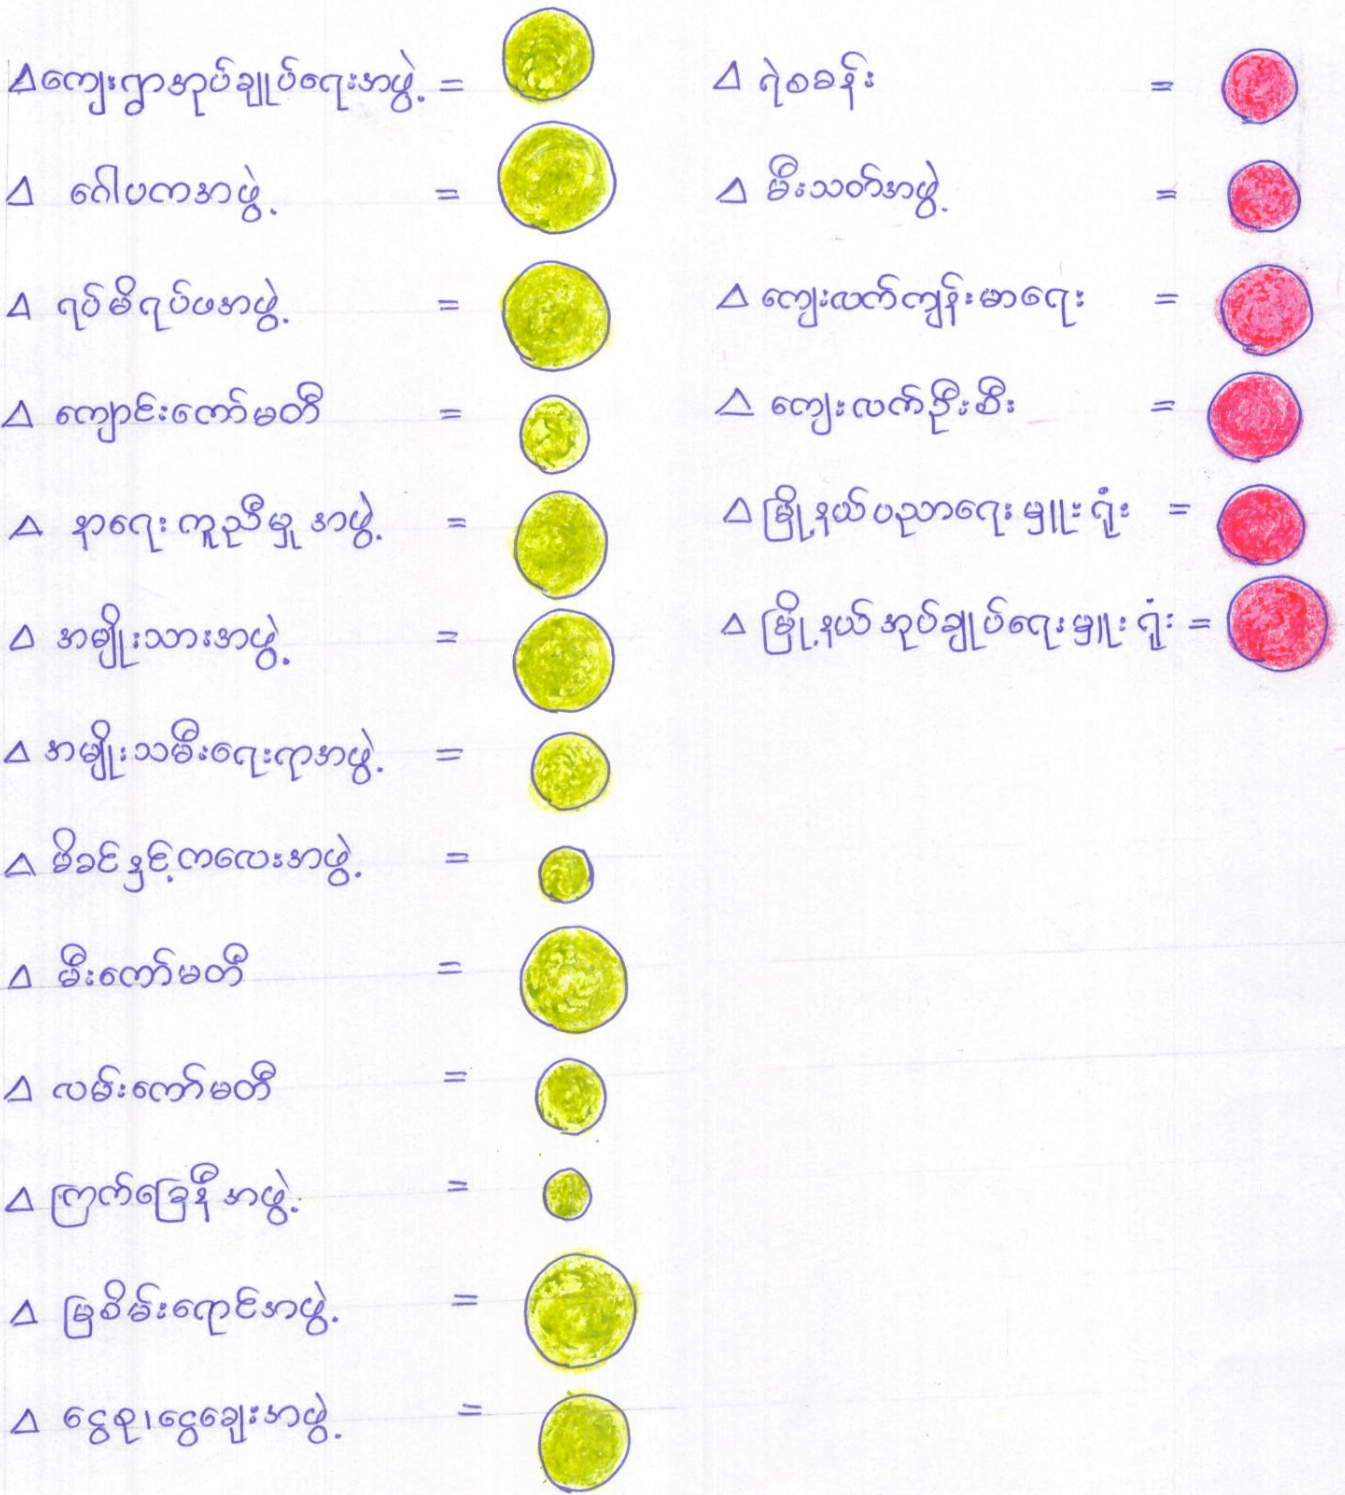 Δ ကျေးရွာအုပ်ချုပ်ရေးအဖွဲ့ =
Δ ဂေါပကအဖွဲ့ =
Δ ရပ်မိရပ်ဖအဖွဲ့ =
Δ ကျောင်းကော်မတီ =
Δ နာရေးကူညီမှုအဖွဲ့ =
Δ အမျိုးသားအဖွဲ့ =
Δ အမျိုးသမီးရေးရာအဖွဲ့ =
Δ မိခင်နှင့်ကလေးအဖွဲ့ =
Δ မီးကော်မတီ =
Δ လမ်းကော်မတီ =
Δ ကြက်ခြေနီအဖွဲ့ =
Δ မြစိမ်းရောင်အဖွဲ့ =
Δ ငွေစု၊ငွေချေးအဖွဲ့ =
Δ ရဲစခန်း =
Δ မီးသတ်အဖွဲ့ =
Δ ကျေးလက်ကျန်းမာရေး =
Δ ကျေးလက်ဦးစီး =
Δ မြို့နယ်ပညာရေးမှူးရုံး =
Δ မြို့နယ်အုပ်ချုပ်ရေးမှူးရုံး =